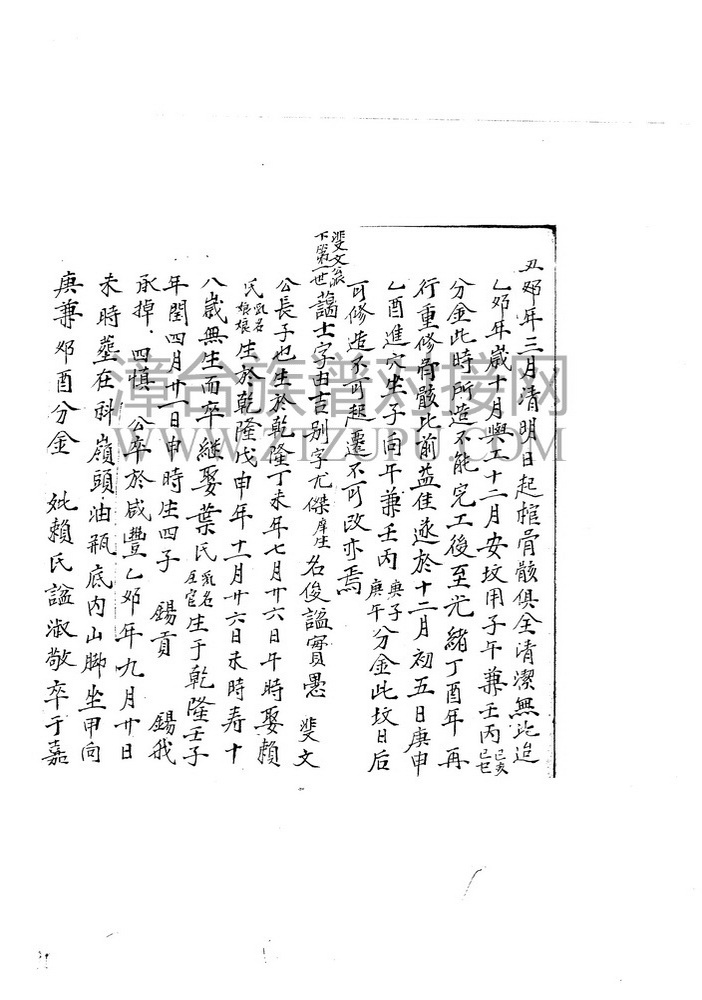 丑夘年三月清明日起棺骨骸俱全清潔無比迨
乙夘年歲十月興工十二月安坟用子午兼壬丙己亥己巳
分金此時所造不能完工後至光緒丁酉年再
行重修骨骸比前益佳遂於十二月初五日庚申
乙酉進穴坐子向午兼壬丙庚子庚午分金此坟日后
可修造不可起遷不可改亦焉
斐文派下第一世藹士字由吉别字尤傑庠生名俊謚實愚 斐文
公長子也生於乾隆丁未年七月廿六日午時娶賴
氏乳名娘娘生於乾隆戊申年十一月廿六日未時寿十
八歲無生而卒継娶葉氏乳名官生于乾隆壬子
年閏四月廿一日申時生四子 錫貢 錫我
承掉 四慎 公卒於咸豐乙夘年九月廿日
未時葬在科嶺頭油瓶底内山脚坐甲向
庚兼夘酉分金 妣賴氏謚淑敬卒于嘉
漳台族谱对接网
WWW.ZTZUPU.COM